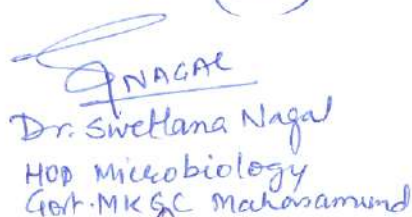 SNAGAL
Dr. Swetlana Nagal
HOD Microbiology
Govt. MKGC Mahasamund